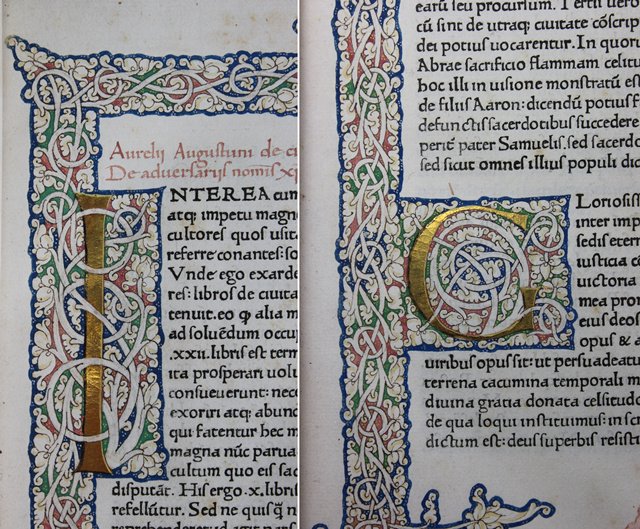 Aurelij Augustini de ci
De aduersarijs nominis xp̄i
INTEREA cum
atq; impetu magno
cultores quos usita
referre conantes: so
Vnde ego exarde
res: libros de ciuita
tenuit. eo ꝙ alia m
ad soluēdum occup
.xxii. libris est term
ita prosperari uolu
consueuerunt: nec
exoriri atq; abund
qui fatentur hec m
magna nūc parua
cultum quo eis sac
disputāt. His ergo .x. libris
refelluntur. Sed ne quisq̄ n
earū seu procurium. Tertii uero
cū sint de utraq; ciuitate cōscrip
dei potius uocarentur. In quor
Abrae sacrificio flammam celitu
hoc illi in uisione monstratū est
de filiis Aaron: dicendū potius f
defunctis sacerdotibus succedere
perite pater Samuelis: sed sacerdo
sed sicut omnes illius populi dic
GLoriosiss
inter imp
sedis eter
iusticia co
uictoria
mea pro
eius deos
opus & a
uiribus opus sit: ut persuadeatu
terrena cacumina temporali m
diuina gratia donata celsitudo
de qua loqui instituimus: in scri
dictum est: deus superbis resisti